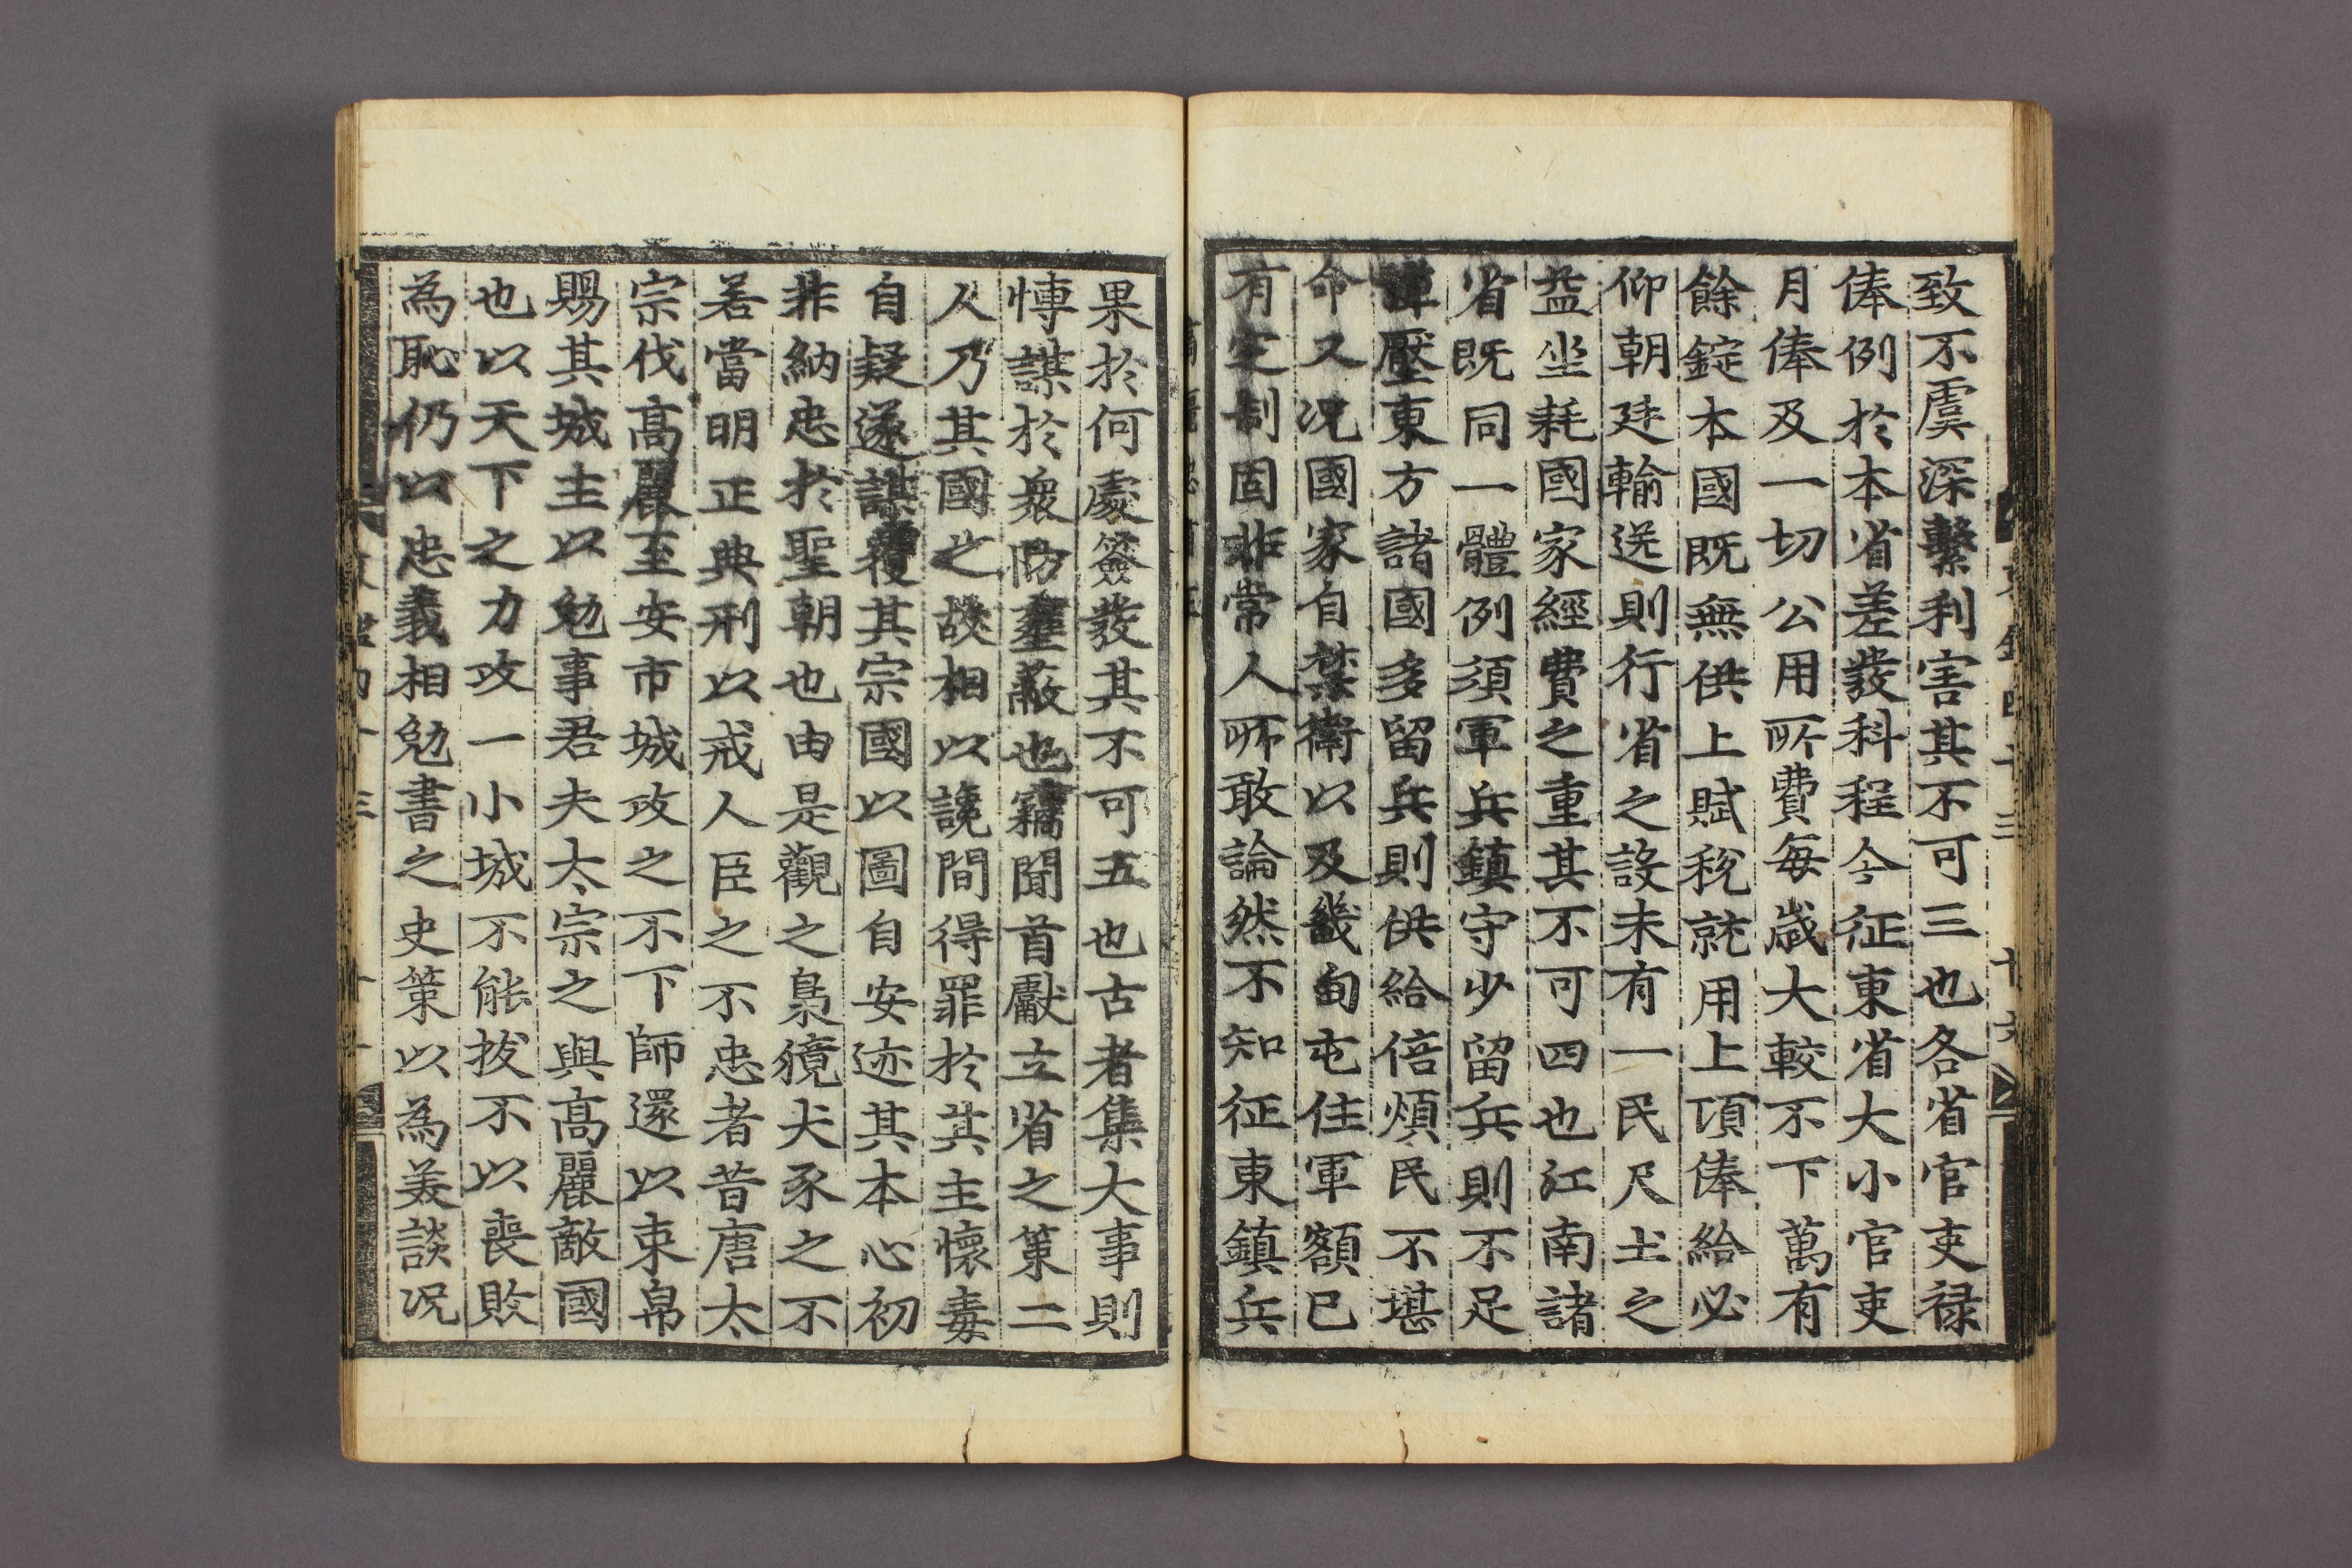 致不虞深繫利害其不可三也各省官吏祿
俸例於本省差發科程今征東省大小官吏
月俸及一切公用所費每歲大較不下萬有
餘錠本國既無供上賦稅就用上項俸給必
仰朝廷輸送則行省之設未有一民尺土之
益坐耗國家經費之重其不可四也江南諸
省既同一體例須軍兵鎮守少留兵則不足
譚壓東方諸國多留兵則供給倍煩民不堪
命又況國家自禁衛以及畿甸屯住軍額已
有定制固非常人所敢論然不知征東鎮兵
果於何處簽發其不可五也古者集大事則
博謀於衆防壅蔽也竊聞首獻立省之策二
人乃其國之故相以讒間得罪於其主懷毒
自疑遂謀覆其宗國以圖自安迹其本心初
非納忠於聖朝也由是觀之梟獍犬豕之不
若當明正典刑以戒人臣之不忠者昔唐太
宗伐高麗至安市城攻之不下師還以束帛
賜其城主以勉事君夫太宗之與高麗敵國
也以天下之力攻一小城不能拔不以喪敗
為恥仍以忠義相勉書之史策以為美談況